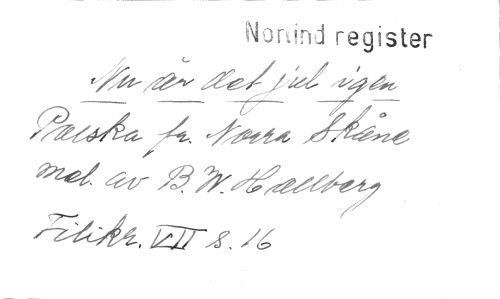 Norlind register
Nu är det jul igen
Polska fr. Norra Skåne
med. av B. W. Hallberg
Filikr. VII s. 16